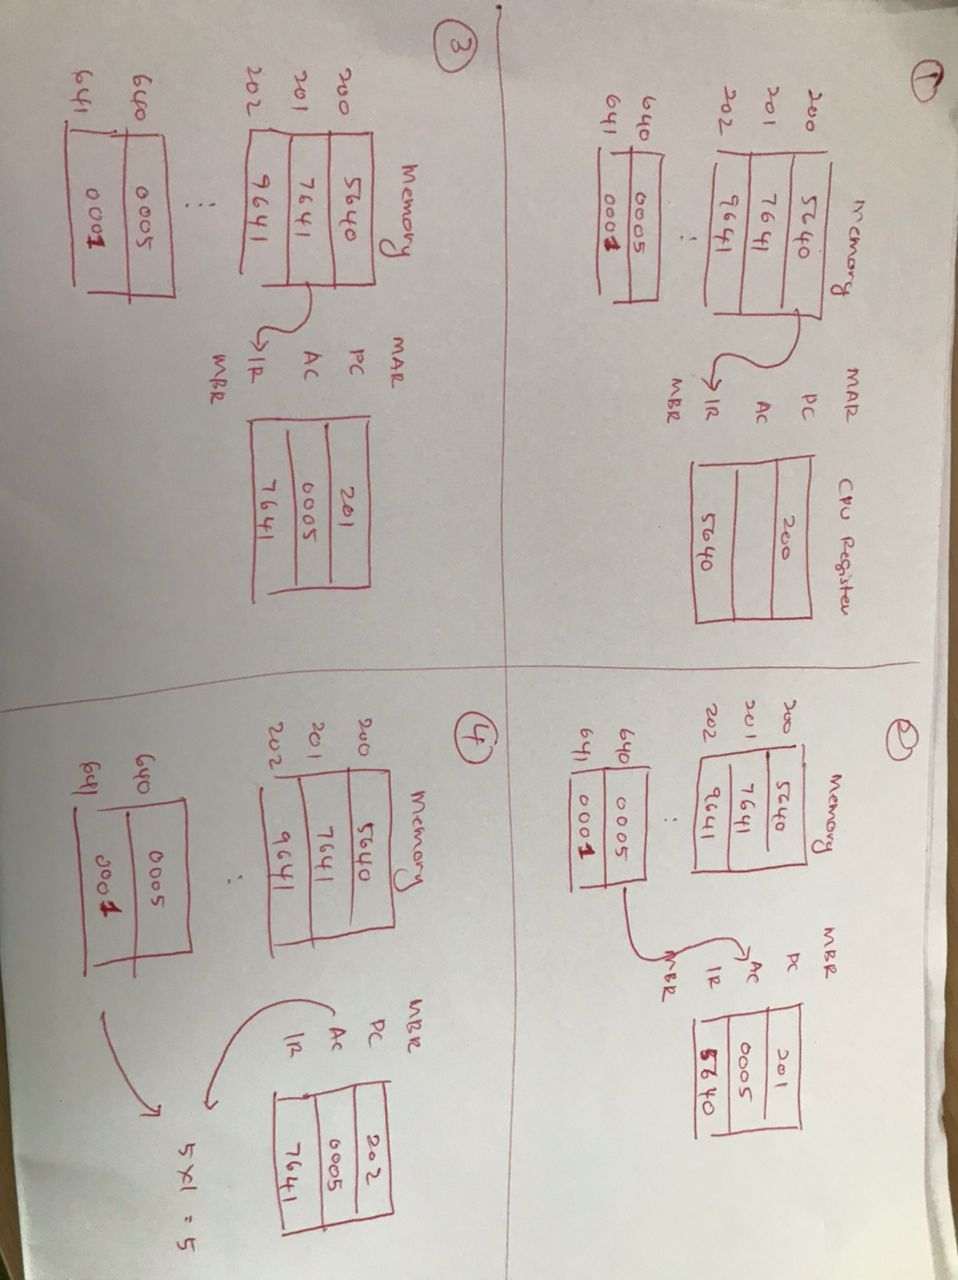 ①
Memory
200 5640
201 7641
202 9641
⋮
640 0005
641 0001
CPU Register
MAR
PC 200
AC
IR 5640
MBR
②
Memory
200 5640
201 7641
202 9641
⋮
640 0005
641 0001
MBR
PC 201
AC 0005
IR 5640
MBR
③
Memory
200 5640
201 7641
202 9641
⋮
640 0005
641 0001
MAR
PC 201
AC 0005
IR 7641
MBR
④
Memory
200 5640
201 7641
202 9641
⋮
640 0005
641 0001
MBR
PC 202
AC 0005
IR 7641
5 x 1 = 5